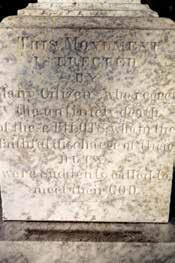 THIS MONUMENT
IS ERECTED
BY
Many Citizens
the untimely death
of the who in the
Faithful discharge of their
DUTY
were suddenly called to
meet their GOD.